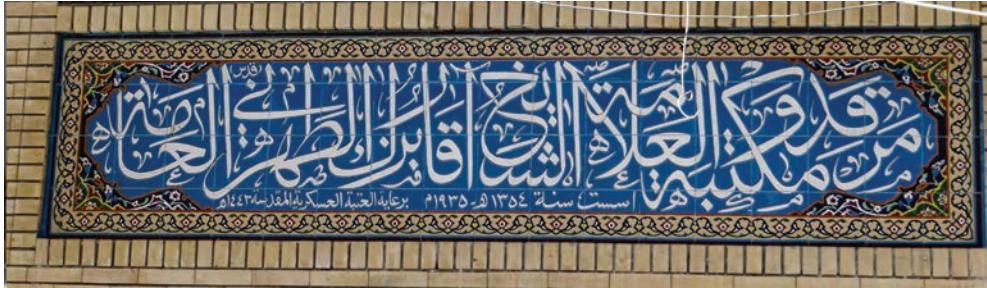 مرقد ومكتبة العلامة الشيخ آقا بزرك الطهراني قدس العامة
اسست سنة ١٣٥٤هـ - ١٩٣٥م برعاية العتبة العسكرية المقدسة ١٤٤٣هـ